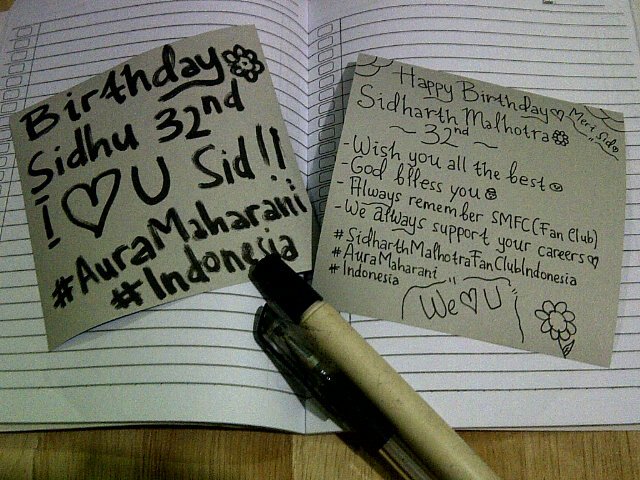 Birthday
Sidhu 32nd
I ♡ U Sid!!
#AuraMaharani
#Indonesia
Happy Birthday♡
Sidharth Malhotra
~ 32nd ~
- Wish you all the best☺
- God blless you☺
- Always remember SMFC(Fan Club)
- We always support your careers♡
#SidharthMalhotraFanClubIndonesia
#AuraMaharani
#Indonesia
"We♡U"